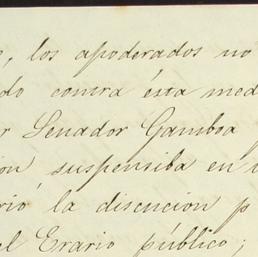 , los apoderados no
do contra ésta med
r Senador Gamboa
ion suspensiba en
rió la discucion p
el Erario público;